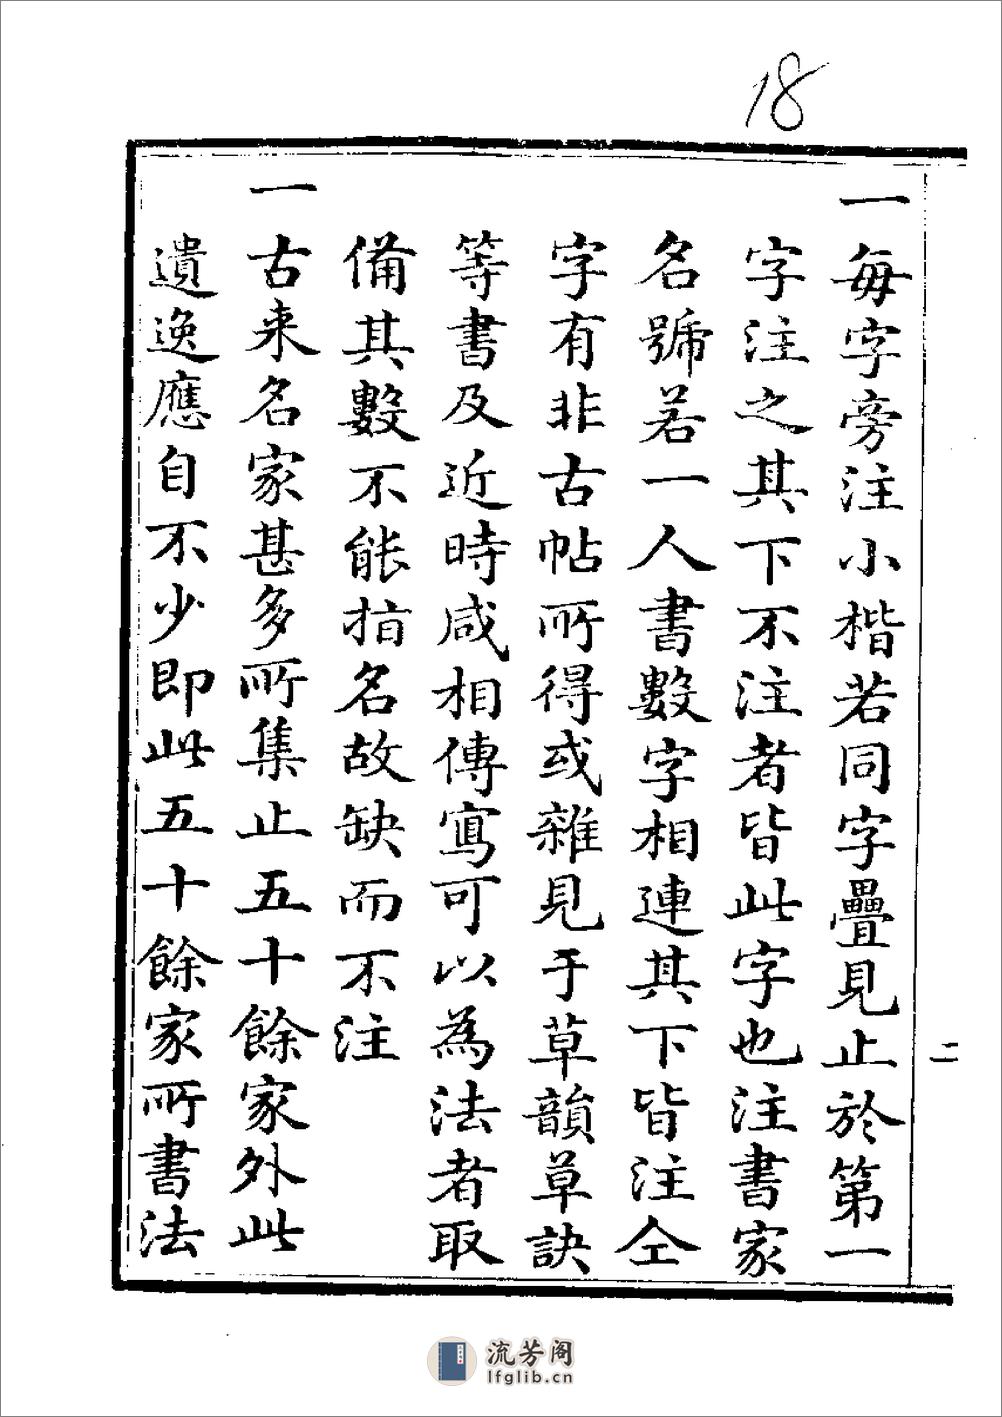 18
一每字旁注小楷若同字疊見止於第一
字注之其下不注者皆此字也注書家
名號若一人書數字相連其下皆注仝
字有非古帖所得或雜見于草韻草訣
等書及近時咸相傳寫可以為法者取
備其數不能指名故缺而不注
一古来名家甚多所集止五十餘家外此
遺逸應自不少即此五十餘家所書法
二
流芳阁
lfglib.cn